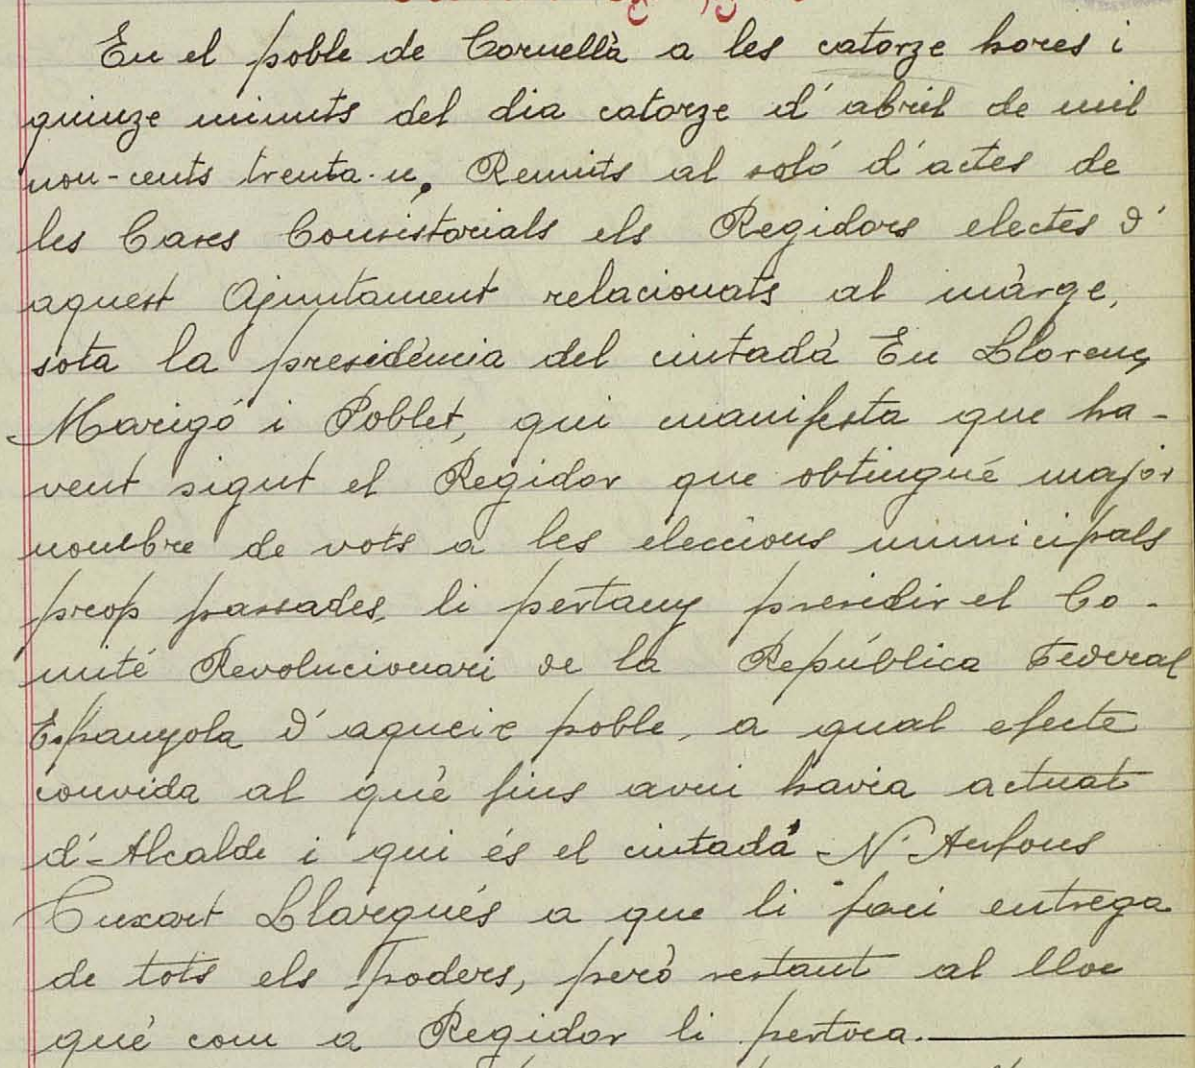 En el poble de Cornellà a les catorze hores i
quinze minuts del dia catorze d'abril de mil
nou-cents trenta-u. Reunits al saló d'actes de
les Cases Consistorials els Regidors electes d'
aquest Ajuntament relacionats al màrge,
sota la presidència del ciutadà En Llorenç
Marigó i Poblet, qui manifesta que ha-
vent sigut el Regidor que obtingué major
nombre de vots a les eleccions municipals
prop passades, li pertany presidir el Co-
mité Revolucionari de la República Federal
Espanyola d'aqueix poble, a qual efecte
convida al qué fins avui havia actuat
d'Alcalde i qui és el ciutadà N'Anfons
Cuxart Llargués a que li faci entrega
de tots els poders, però restant al lloc
qué com a Regidor li pertoca.